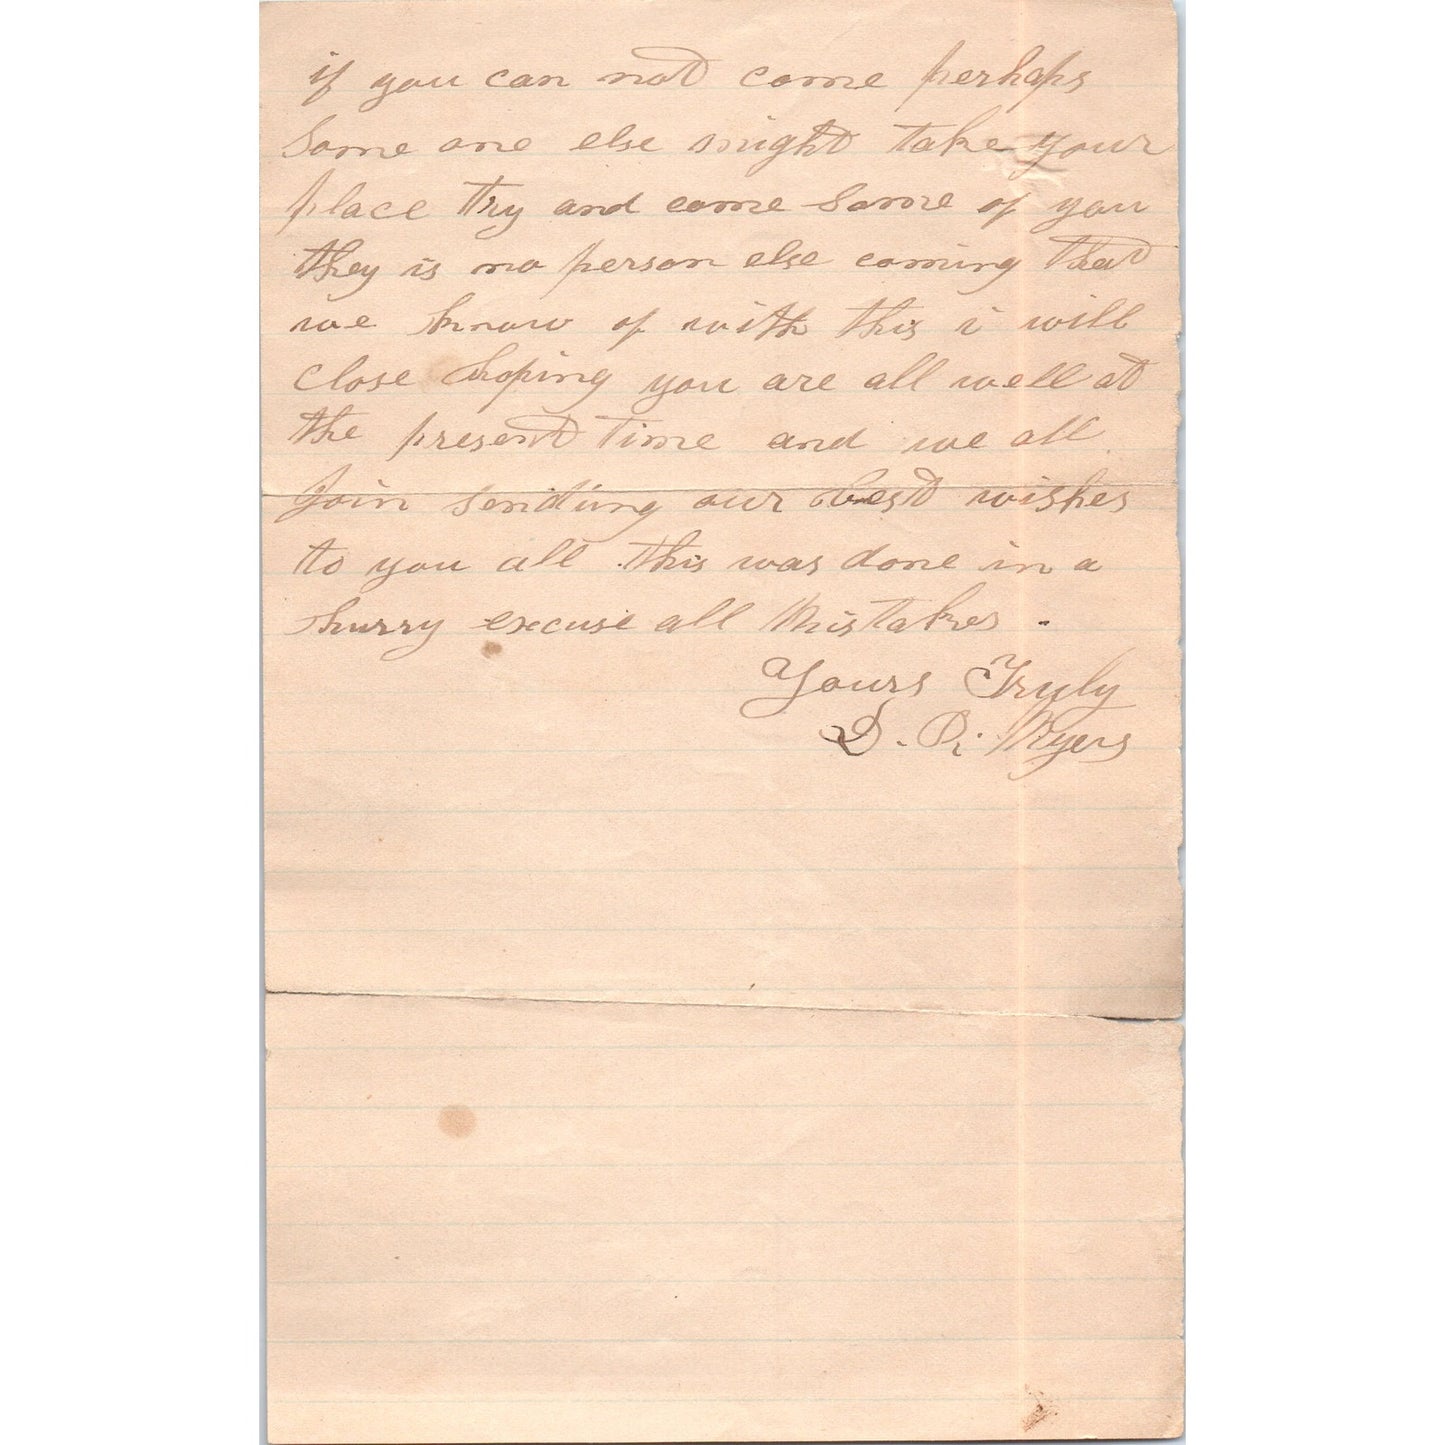 if you can not come perhaps
Some one else might take your
place try and come Some of you
they is no person else coming that
we know of with this i will
close hoping you are all well at
the present time and we all
Join sending our best wishes
to you all this was done in a
hurry excuse all Mistakes .
Yours Truly
Myers